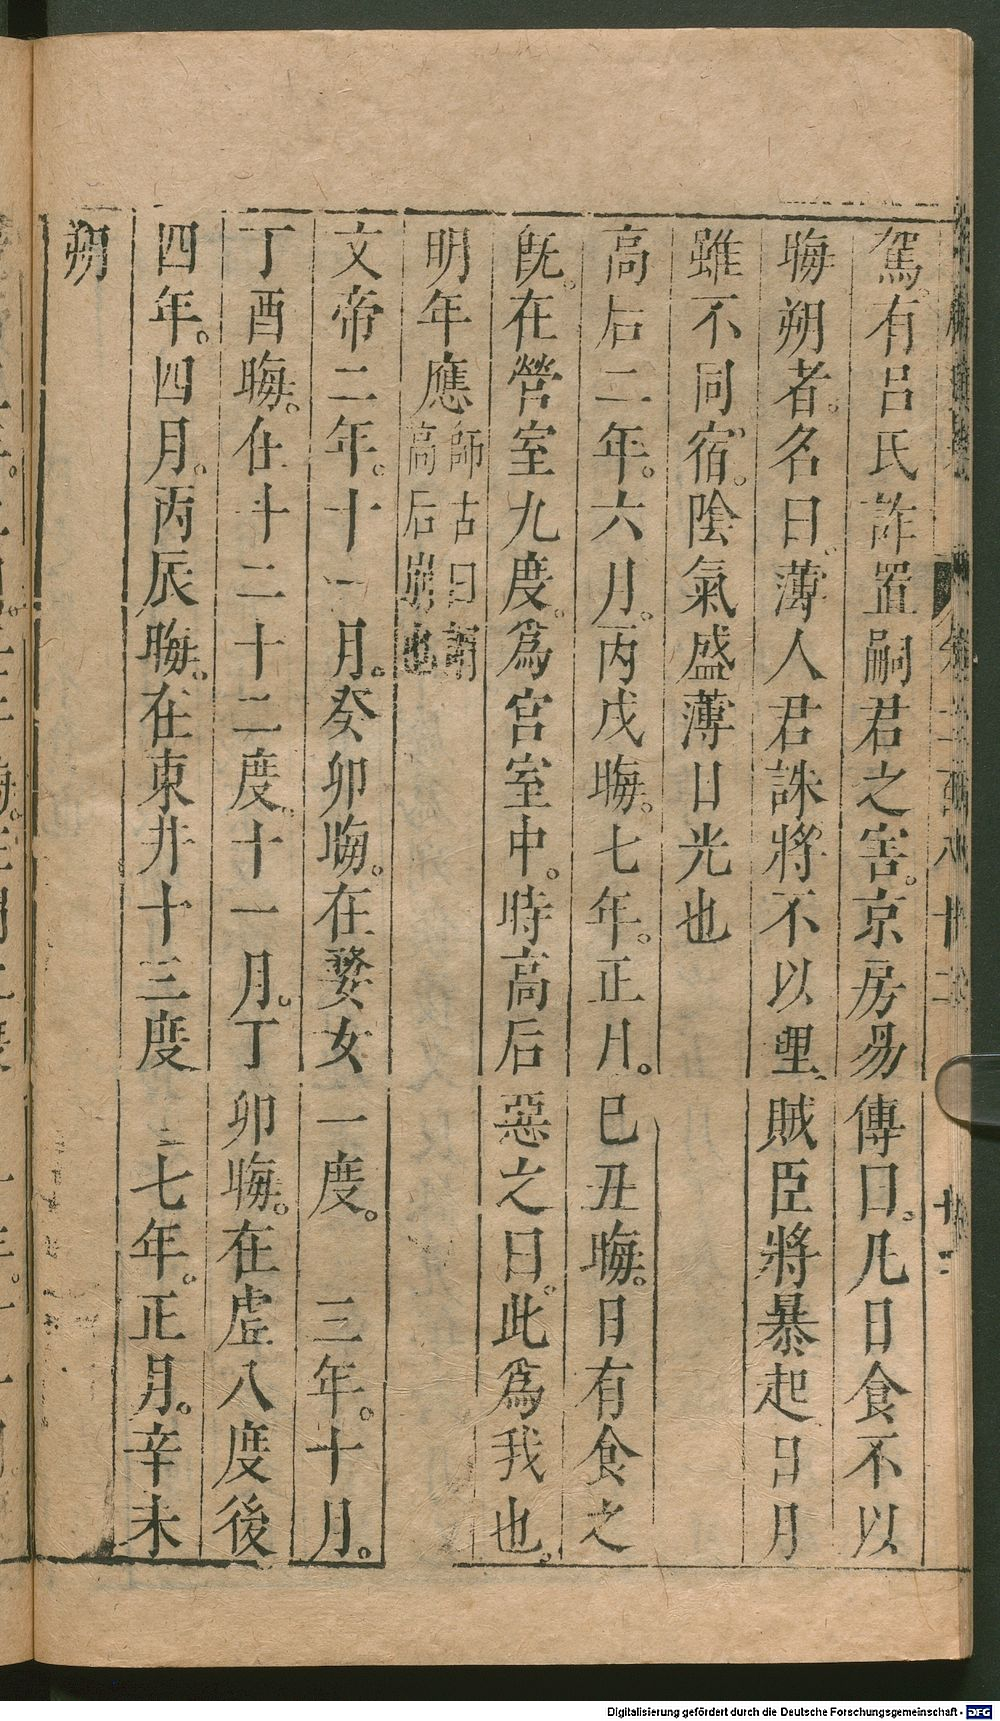 駕。有呂氏詐置嗣君之害。京房易傳曰。凡日食不以
晦朔者。名曰。薄人君誅將不以理、賊臣將暴起日月
雖不同宿。陰氣盛薄日光也
高后二年。六月。丙戌晦。七年。正月。巳丑晦。日有食之
旣。在營室九度。爲宮室中。時高后惡之曰。此爲我也。
明年應師古曰謂高后崩也
文帝二年。十一月。癸卯晦。在婺女一度。 三年。十月。
丁酉晦。在斗二十二度。十一月。丁卯晦。在虛八度後
四年。四月。丙辰晦。在東井十三度 七年。正月。辛未
朔
Digitalisierung gefördert durch die Deutsche Forschungsgemeinschaft - DFG